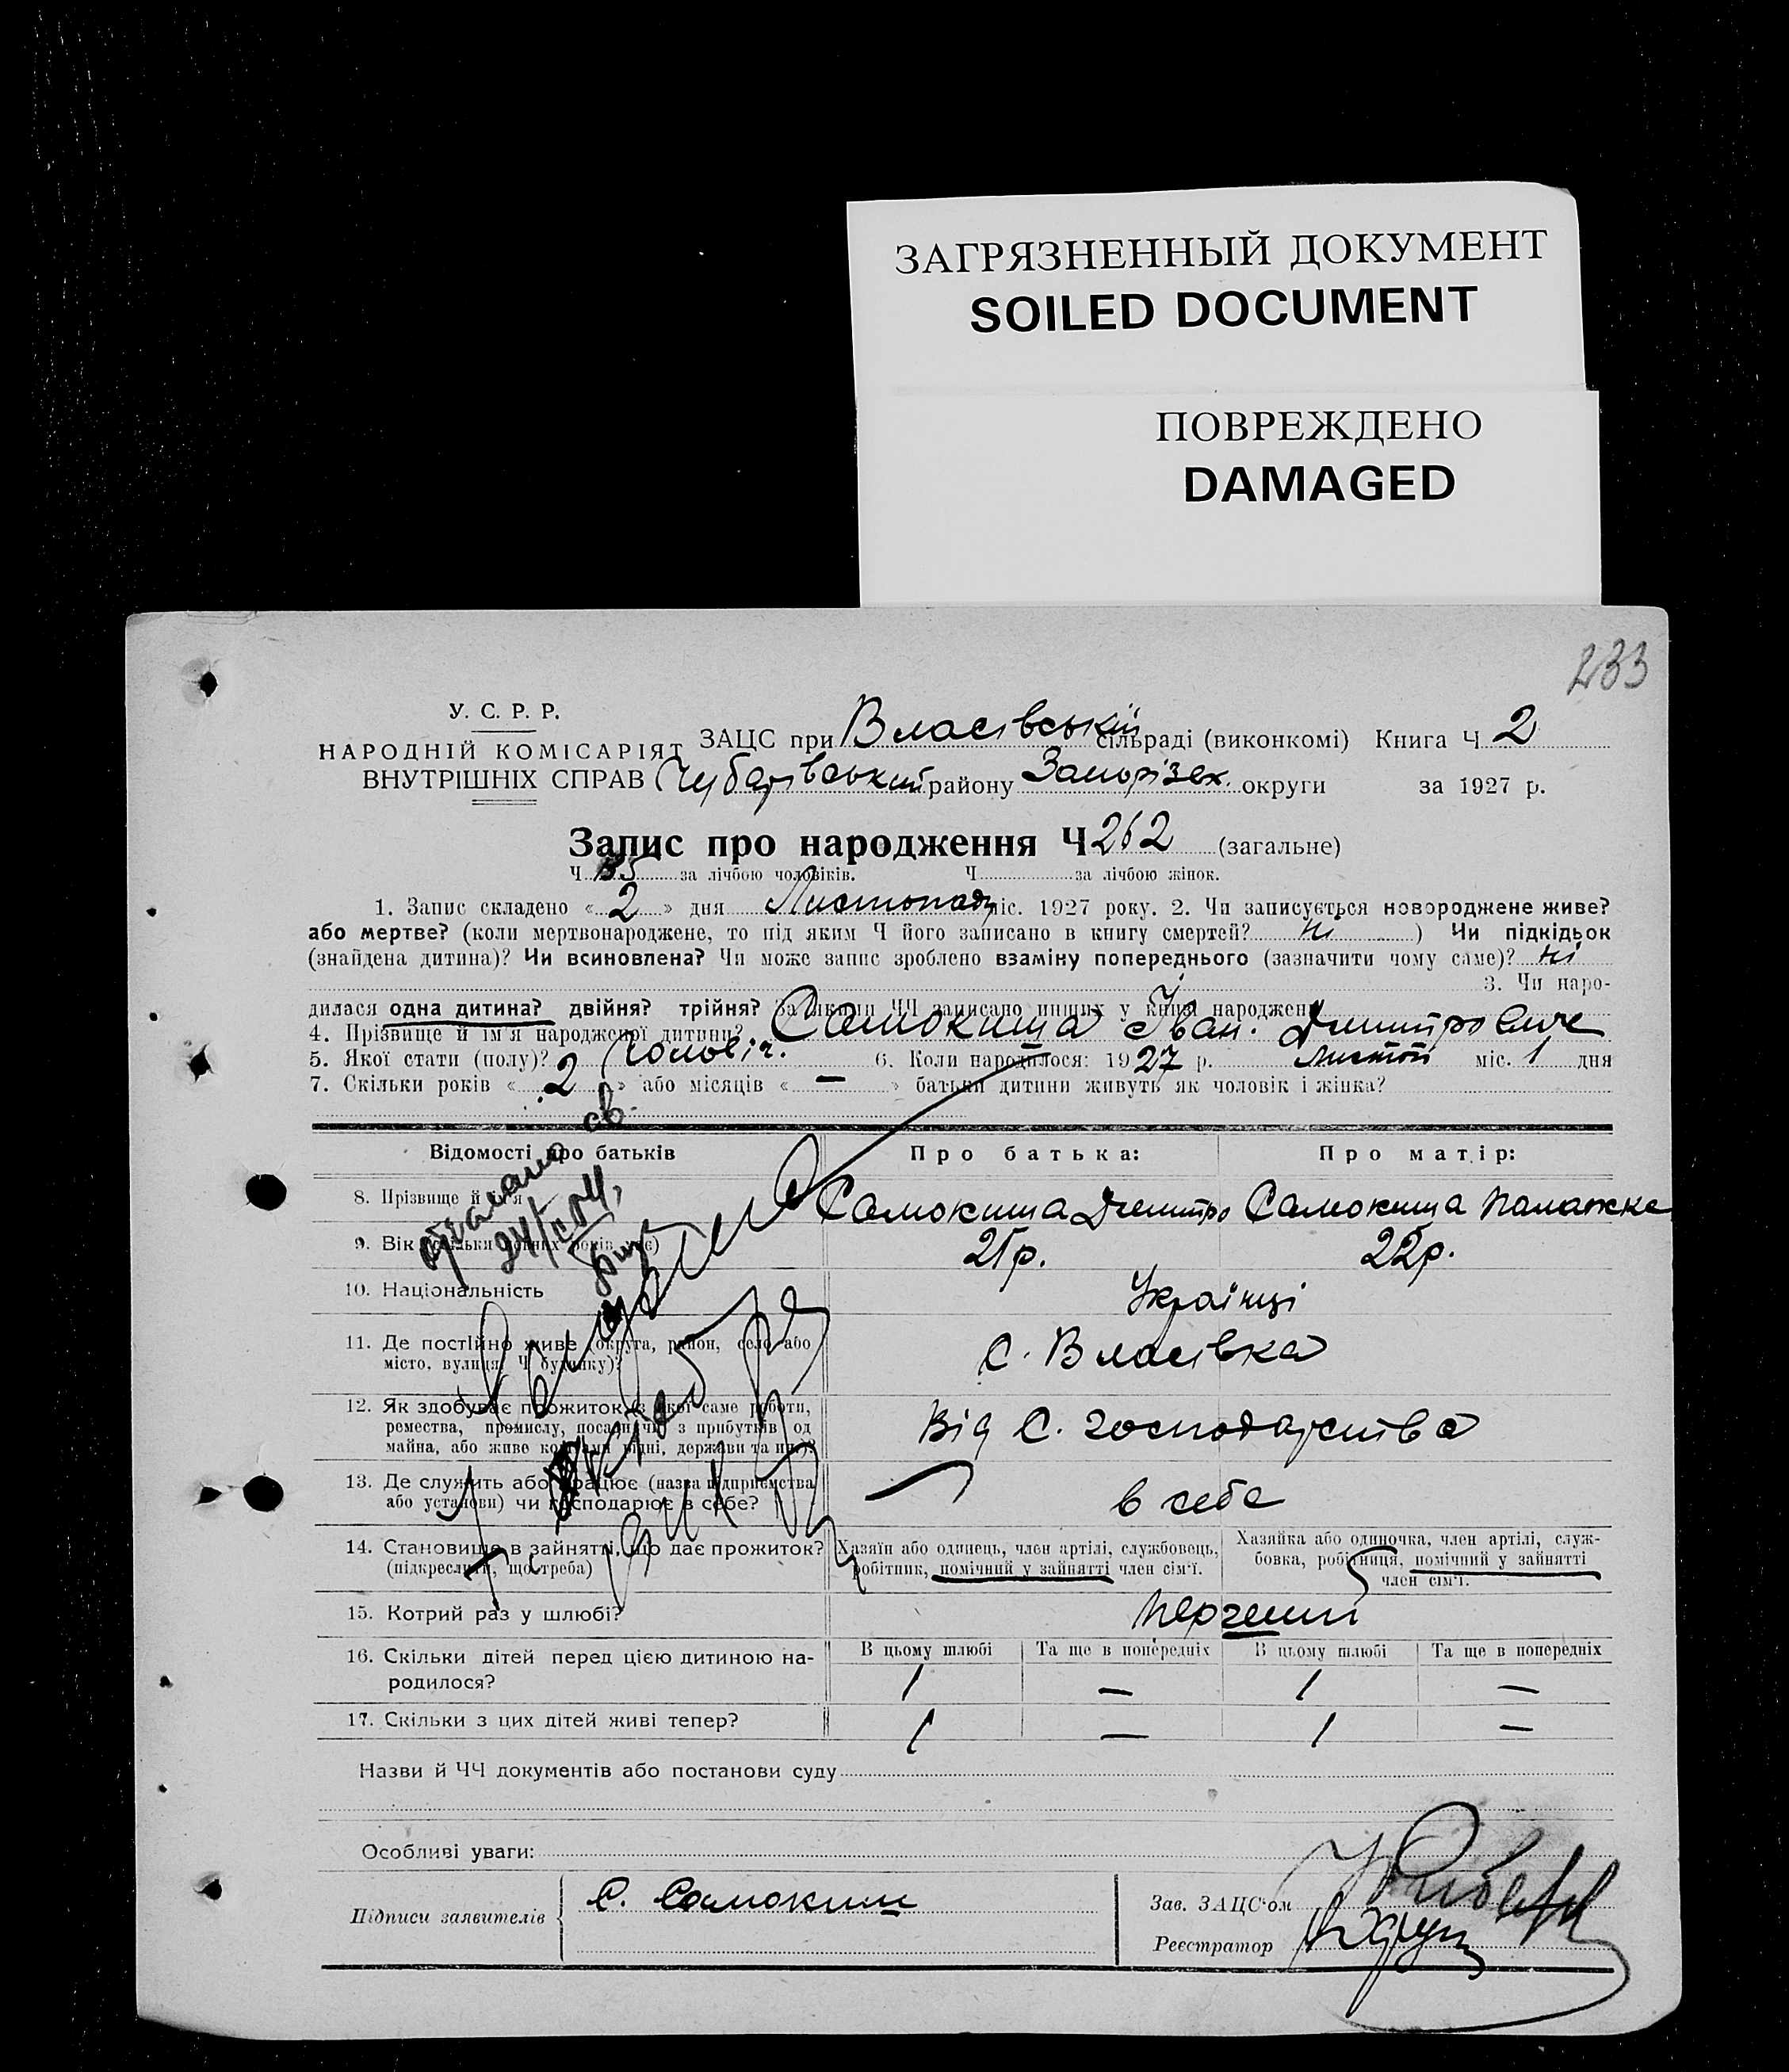 ЗАГРЯЗНЕННЫЙ ДОКУМЕНТ
SOILED DOCUMENT
ПОВРЕЖДЕНО
DAMAGED
233
У. С. Р. Р.
НАРОДНІЙ КОМІСАРІЯТ
ВНУТРІШНІХ СПРАВ
ЗАЦС при Власівській сільраді (виконкомі) Книга Ч 2
Чубарівський району Запорізьк. округи за 1927 р.
Запис про народження Ч 262 (загальне)
Ч. за лічбою чоловіків. Ч. за лічбою жінок.
1. Запис складено « 2 » дня Листопаду міс. 1927 року. 2. Чи записується новороджене живе?
або мертве? (коли мертвонароджене, то під яким Ч його записано в книгу смертей? ні ) Чи підкідьок
(знайдена дитина)? Чи всиновлена? Чи може запис зроблено взаміну попереднього (зазначити чому саме)? ні
3. Чи наро-
дилася одна дитина? двійня? трійня? За якими ЧЧ записано инших у книзі народжень
4. Прізвище й ім'я народженої дитини? Самокиша Іван. Дмитрович
5. Якої стати (полу)? Чоловіч. 6. Коли народилося: 1927 р. Листоп міс. 1 дня
7. Скільки років « 2 » або місяців « — » батьки дитини живуть як чоловік і жінка?
Відомості про батьків Про батька: Про матір:
8. Прізвище й ім'я Самокиша Дмитро Самокиша Палажка
9. Вік (скільки повних років має) 21 р. 22 р.
10. Національність Українці
11. Де постійно живе (округа, район, село або
місто, вулиця, Ч будинку)? С. Власівка
12. Як здобуває прожиток (з якої саме роботи,
ремества, промислу, посади, чи з прибутків од
майна, або живе коштами рідні, держави та инш)? Від С. господарства
13. Де служить або працює (назва підприємства
або установи) чи господарює в себе? в себе
14. Становище в зайнятті, що дає прожиток?
(підкреслити, що треба)
Хазяїн або одинець, член артілі, службовець,
робітник, помічний у зайнятті член сім'ї.
Хазяйка або одиночка, член артілі, служ-
бовка, робітниця, помічний у зайнятті
член сім'ї.
15. Котрий раз у шлюбі?
16. Скільки дітей перед цією дитиною на-
родилося?
В цьому шлюбі Та ще в попередніх В цьому шлюбі Та ще в попередніх
1 — 1 —
17. Скільки з цих дітей живі тепер? 1 — 1 —
Назви й ЧЧ документів або постанови суду
Особливі уваги:
Підписи заявителів С. Самокиш
Зав. ЗАЦС'ом
Реєстратор